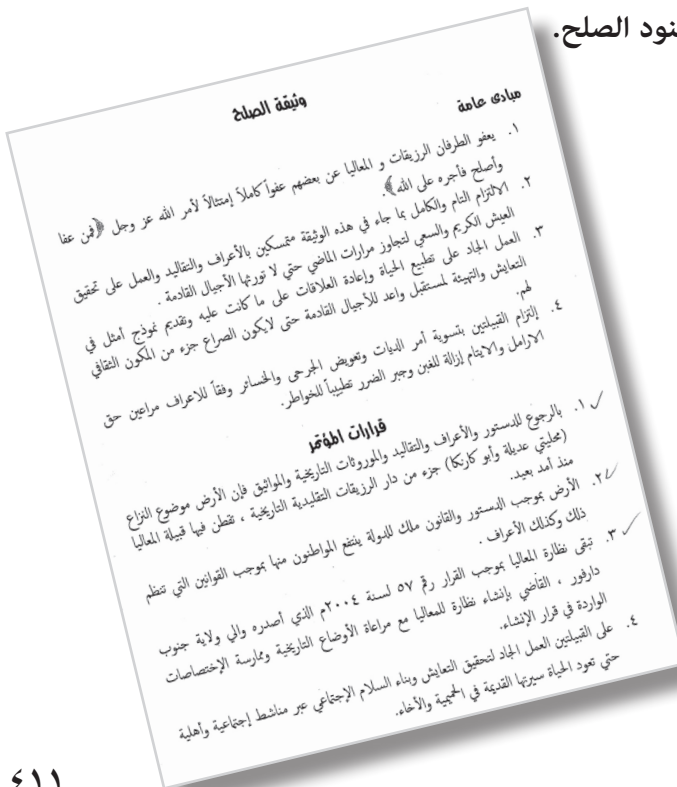 بنود الصلح.
وثيقة الصلح
مبادئ عامة
١. يعفو الطرفان الرزيقات و المعاليا عن بعضهم عفواً كاملاً إمتثالاً لأمر الله عز وجل ﴿فمن عفا
وأصلح فأجره على الله﴾.
٢. الالتزام التام والكامل بما جاء في هذه الوثيقة متمسكين بالأعراف والتقاليد والعمل على تحقيق
العيش الكريم والسعي لتجاوز مرارات الماضي حتي لا تورثها الأجيال القادمة .
٣. العمل الجاد على تطبيع الحياة وإعادة العلاقات على ما كانت عليه وتقديم نموذج أمثل في
التعايش والتهيئة لمستقبل واعد للأجيال القادمة حتى لايكون الصراع جزء من المكون الثقافي
لهم.
٤. إلتزام القبيلتين بتسوية أمر الديات وتعويض الجرحى والخسائر وفقاً للاعراف مراعين حق
الارامل والايتام إزالة للغبن وجبر الضرر تطييباً للخواطر.
قرارات المؤتمر
١. بالرجوع للدستور والأعراف والتقاليد والموروثات التاريخية والمواثيق فإن الأرض موضوع النزاع
(محليتي عديلة وأبو كارنكا) جزء من دار الرزيقات التقليدية التاريخية ، تقطن فيها قبيلة المعاليا
منذ أمد بعيد.
٢. الأرض بموجب الدستور والقانون ملك للدولة ينتفع المواطنون منها بموجب القوانين التي تنظم
ذلك وكذلك الأعراف .
٣. تبقى نظارة المعاليا بموجب القرار رقم ٥٧ لسنة ٢٠٠٤م الذي أصدره والي ولاية جنوب
دارفور ، القاضي بإنشاء نظارة للمعاليا مع مراعاة الأوضاع التاريخية وممارسة الإختصاصات
الواردة في قرار الإنشاء.
٤. على القبيلتين العمل الجاد لتحقيق التعايش وبناء السلام الإجتماعي عبر مناشط إجتماعية وأهلية
حتي تعود الحياة سيرتها القديمة في الحميمية والأخاء.
٤١١